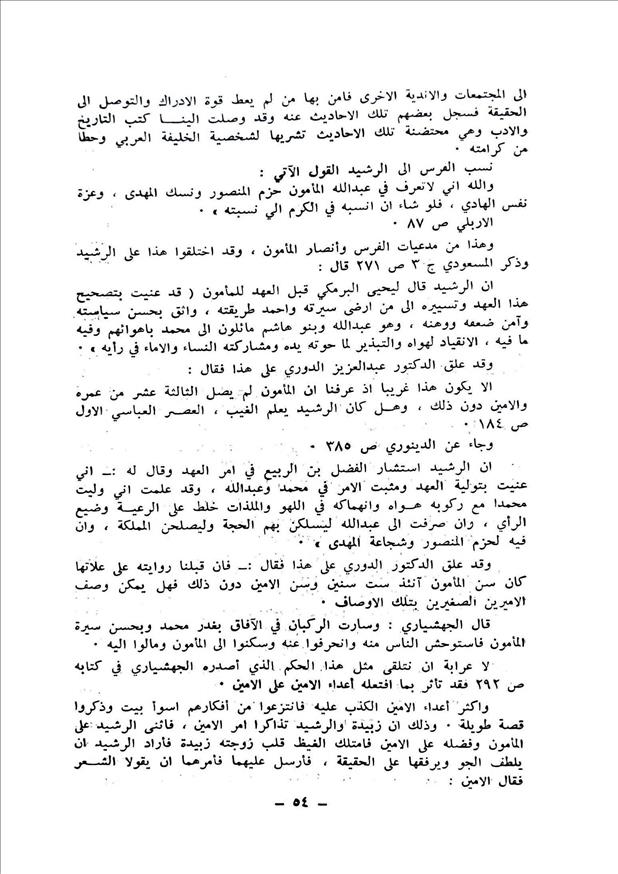 الى المجتمعات والاندية الاخرى فامن بها من لم يعط قوة الادراك والتوصل الى
الحقيقة فسجل بعضهم تلك الاحاديث عنه وقد وصلت الينـــا كتب التاريخ
والادب وهي محتضنة تلك الاحاديث تشريها لشخصية الخليفة العربي وحطا
من كرامته ٠
نسب الفرس الى الرشيد القول الآتي :
والله اني لاتعرف في عبدالله المأمون حزم المنصور ونسك المهدى ، وعزة
نفس الهادي ، فلو شاء ان انسبه في الكرم الي نسبته » ٠
الاربلي ص ٨٧ ٠
وهذا من مدعيات الفرس وأنصار المأمون ، وقد اختلقوا هذا على الرشيد
وذكر المسعودي ج ٣ ص ٢٧١ قال :
ان الرشيد قال ليحيى البرمكي قبل العهد للمأمون ( قد عنيت بتصحيح
هذا العهد وتسييره الى من ارضى سيرته واحمد طريقته ، واثق بحسن سياسته
وآمن ضعفه ووهنه ، وهو عبدالله وبنو هاشم مائلون الى محمد باهوائهم وفيه
ما فيه ، الانقياد لهواه والتبذير لما حوته يده ومشاركته النساء والاماء في رأيه » ٠
وقد علق الدكتور عبدالعزيز الدوري على هذا فقال :
الا يكون هذا غريبا اذ عرفنا ان المأمون لم يصل الثالثة عشر من عمره
والامين دون ذلك ، وهـــل كان الرشيد يعلم الغيب ، العصر العباسي الاول
ص ١٨٤ ٠
وجاء عن الدينوري ص ٣٨٥ ٠
ان الرشيد استشار الفضل بن الربيع في امر العهد وقال له :ـ اني
عنيت بتولية العهد ومثبت الامر في محمد وعبدالله ، وقد علمت اني وليت
محمدا مع ركوبه هـــواه وانهماكه في اللهو والملذات خلط على الرعيـــة وضيع
الرأي ، ران صرفت الى عبدالله ليسلكن بهم الحجة وليصلحن المملكة ، وان
فيه لحزم المنصور وشجاعة المهدى » ٠
وقد علق الدكتور الدوري على هذا فقال :ـ فان قبلنا روايته على علاتها
كان سن المأمون آنئذ ست سنين وسن الامين دون ذلك فهل يمكن وصف
الاميرين الصغيرين بتلك الاوصاف ٠
قال الجهشياري : وسارت الركبان في الآفاق بغدر محمد وبحسن سيرة
المأمون فاستوحش الناس منه وانحرفوا عنه وسكنوا الى المأمون ومالوا اليه ٠
لا عرابة ان نتلقى مثل هذا الحكم الذي أصدره الجهشياري في كتابه
ص ٢٩٢ فقد تأثر بما افتعله أعداء الامين على الامين ٠
واكثر أعداء الامين الكذب عليه فانتزعوا من أفكارهم اسوأ بيت وذكروا
قصة طويلة ٠ وذلك ان زبيدة والرشيد تذاكرا امر الامين ، فاثنى الرشيد على
المأمون وفضله على الامين فامتلك الغيظ قلب زوجته زبيدة فأراد الرشيد ان
يلطف الجو ويرفقها على الحقيقة ، فأرسل عليهما فأمرهما ان يقولا الشـــعر
فقال الامين :
ـ ٥٤ ـ